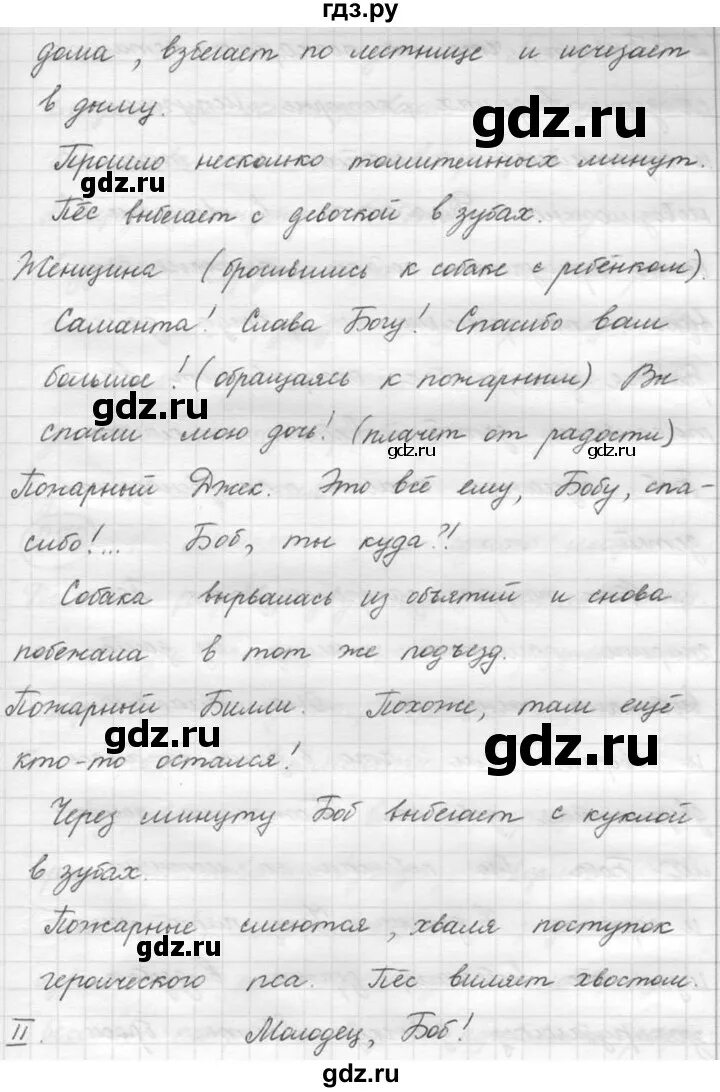 гдз.ру
дома, взбегает по лестнице и исчезает
в дыму.
gdz.ru
Прошло несколько томительных минут.
gdz.ru
Пёс выбегает с девочкой в зубах.
Женщина (бросившись к собаке с ребёнком).
Саманта! Слава Богу! Спасибо вам
большое! (обращаясь к пожарным) Вы
gdz.ru
спасли мою дочь! (плачет от радости)
gdz.ru
Пожарный Джек. Это всё ему, Бобу, спа-
сибо!... Боб, ты куда?!
Собака вырвалась из объятий и снова
побежала в тот же подъезд.
Пожарный Билли. Похоже, там ещё
gdz.ru
gdz.ru
кто-то остался!
Через минуту Боб выбегает с куклой
в зубах.
Пожарные смеются, хваля поступок
gdz.ru
героического пса. Пёс виляет хвостом.
II. Молодец, Боб!
gdz.ru
gdz.ru